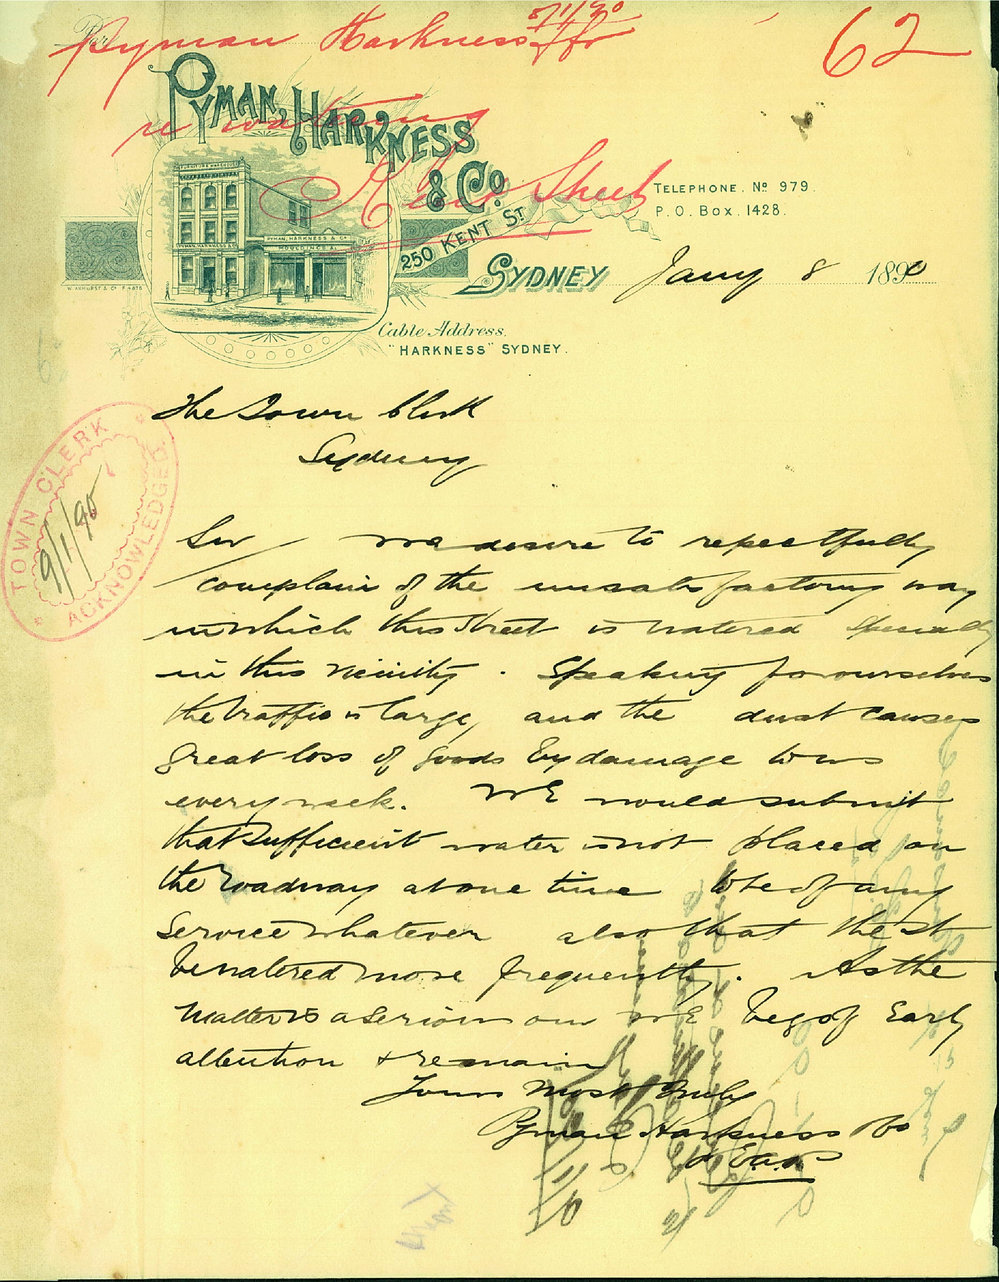 Pyman Harkness
62
re watering
Kent Street
PYMAN, HARKNESS
& Co.
250 KENT ST
SYDNEY
TELEPHONE. No 979.
P.O. Box. 1428.
Jany 8 1890
Cable Address,
"HARKNESS" SYDNEY.
PYMAN, HARKNESS & Co
TOWN CLERK
9/1/90
ACKNOWLEDGED.
The Town Clerk
Sydney
Sir, we desire to repectfully
complain of the unsatisfactory way
in which this Street is watered specially
in this vicinity. Speaking for ourselves
the traffic is large, and the dust causes
great loss of goods by damage to us
every week. WE would submit
that sufficient water is not placed on
the roadway at one time to be of any
service whatever also that the St
be watered more frequently. As the
matter is a serious one WE beg of Early
attention & remain
Yours most truly
Pyman Harkness Co